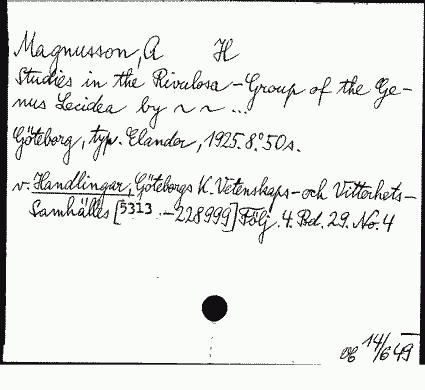 Magnusson, A H
Studies in the Rivulosa-Group of the Ge-
nus Lecidea by ~ ~ ...
Göteborg, typ. Elander, 1925. 8.° 50 s.
v. Handlingar, Göteborgs K. Vetenskaps- och Vitterhets-
Samhälles [5313 - 228999] Följ. 4. Bd. 29. No. 4
14/6 49